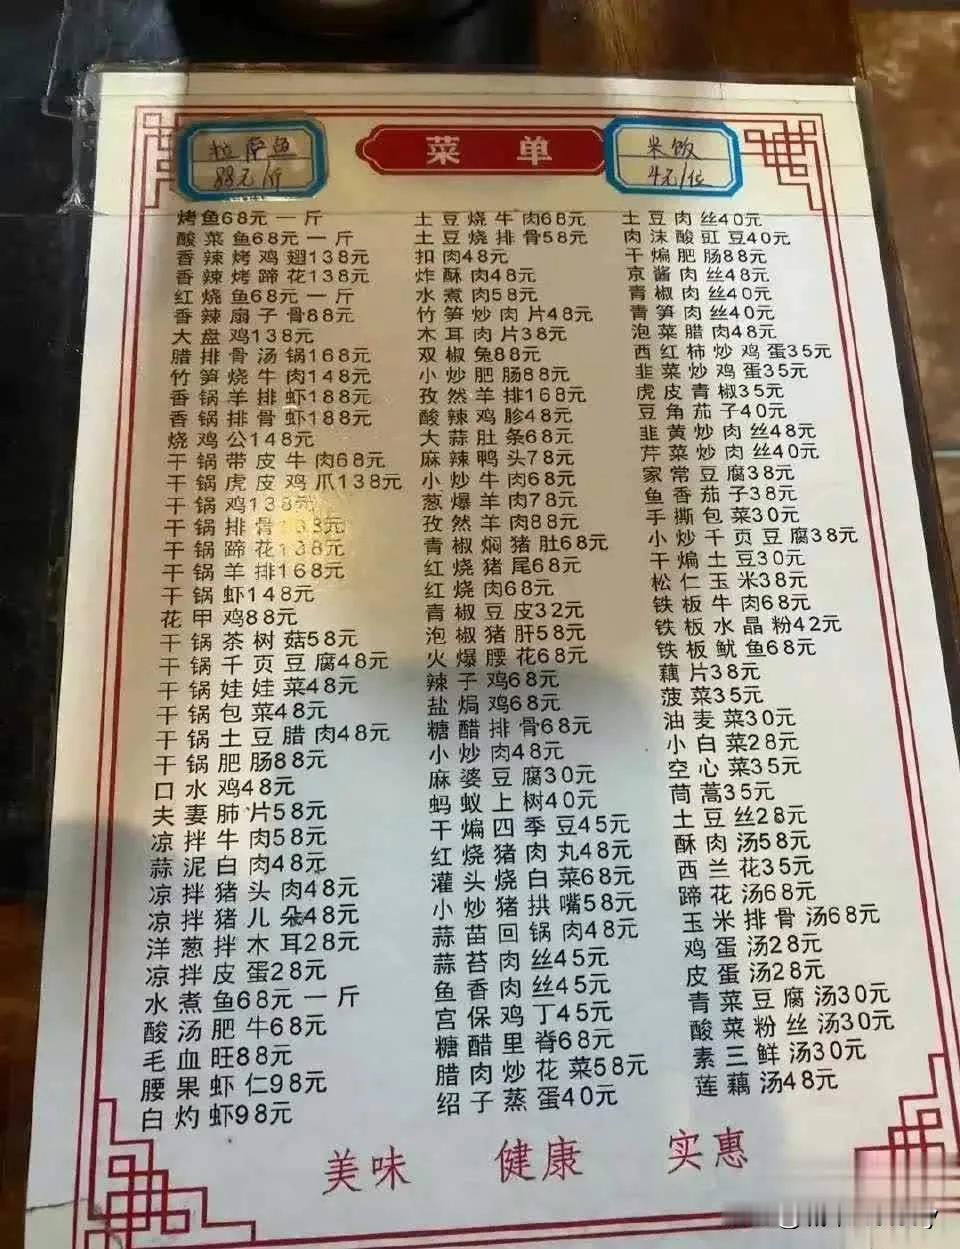 菜单
拉萨鱼
88元/斤
米饭
4元/位
烤鱼68元一斤
酸菜鱼68元一斤
香辣烤鸡翅138元
香辣烤蹄花138元
红烧鱼68元一斤
香辣扇子骨88元
大盘鸡138元
腊排骨汤锅168元
竹笋烧牛肉148元
香锅羊排虾188元
香锅排骨虾188元
烧鸡公148元
干锅带皮牛肉68元
干锅虎皮鸡爪138元
干锅鸡138元
干锅排骨138元
干锅蹄花138元
干锅羊排168元
干锅虾148元
花甲鸡88元
干锅茶树菇58元
干锅千页豆腐48元
干锅娃娃菜48元
干锅包菜48元
干锅土豆腊肉48元
干锅肥肠88元
口水鸡48元
夫妻肺片58元
凉拌牛肉58元
蒜泥白肉48元
凉拌猪头肉48元
凉拌猪儿朵48元
洋葱拌木耳28元
凉拌皮蛋28元
水煮鱼68元一斤
酸汤肥牛68元
毛血旺88元
腰果虾仁98元
白灼虾98元
土豆烧牛肉68元
土豆烧排骨58元
扣肉48元
炸酥肉48元
水煮肉58元
竹笋炒肉片48元
木耳肉片38元
双椒兔88元
小炒肥肠88元
孜然羊排168元
酸辣鸡胗48元
大蒜肚条68元
麻辣鸭头78元
小炒牛肉68元
葱爆羊肉78元
孜然羊肉88元
青椒焖猪肚68元
红烧猪尾68元
红烧肉68元
青椒豆皮32元
泡椒猪肝58元
火爆腰花68元
辣子鸡68元
盐焗鸡68元
糖醋排骨68元
小炒肉48元
麻婆豆腐30元
蚂蚁上树40元
干煸四季豆45元
红烧猪肉丸48元
灌头烧白菜68元
小炒猪拱嘴58元
蒜苗回锅肉48元
蒜苔肉丝45元
鱼香肉丝45元
宫保鸡丁45元
糖醋里脊68元
腊肉炒花菜58元
绍子蒸蛋40元
土豆肉丝40元
肉沫酸豇豆40元
干煸肥肠88元
京酱肉丝48元
青椒肉丝40元
青笋肉丝40元
泡菜腊肉48元
西红柿炒鸡蛋35元
韭菜炒鸡蛋35元
虎皮青椒35元
豆角茄子40元
韭黄炒肉丝48元
芹菜炒肉丝40元
家常豆腐38元
鱼香茄子38元
手撕包菜30元
小炒千页豆腐38元
干煸土豆30元
松仁玉米38元
铁板牛肉68元
铁板水晶粉42元
铁板鱿鱼68元
藕片38元
菠菜35元
油麦菜30元
小白菜28元
空心菜35元
茼蒿35元
土豆丝28元
酥肉汤58元
西兰花35元
蹄花汤68元
玉米排骨汤68元
鸡蛋汤28元
皮蛋汤28元
青菜豆腐汤30元
酸菜粉丝汤30元
素三鲜汤30元
莲藕汤48元
美味 健康 实惠